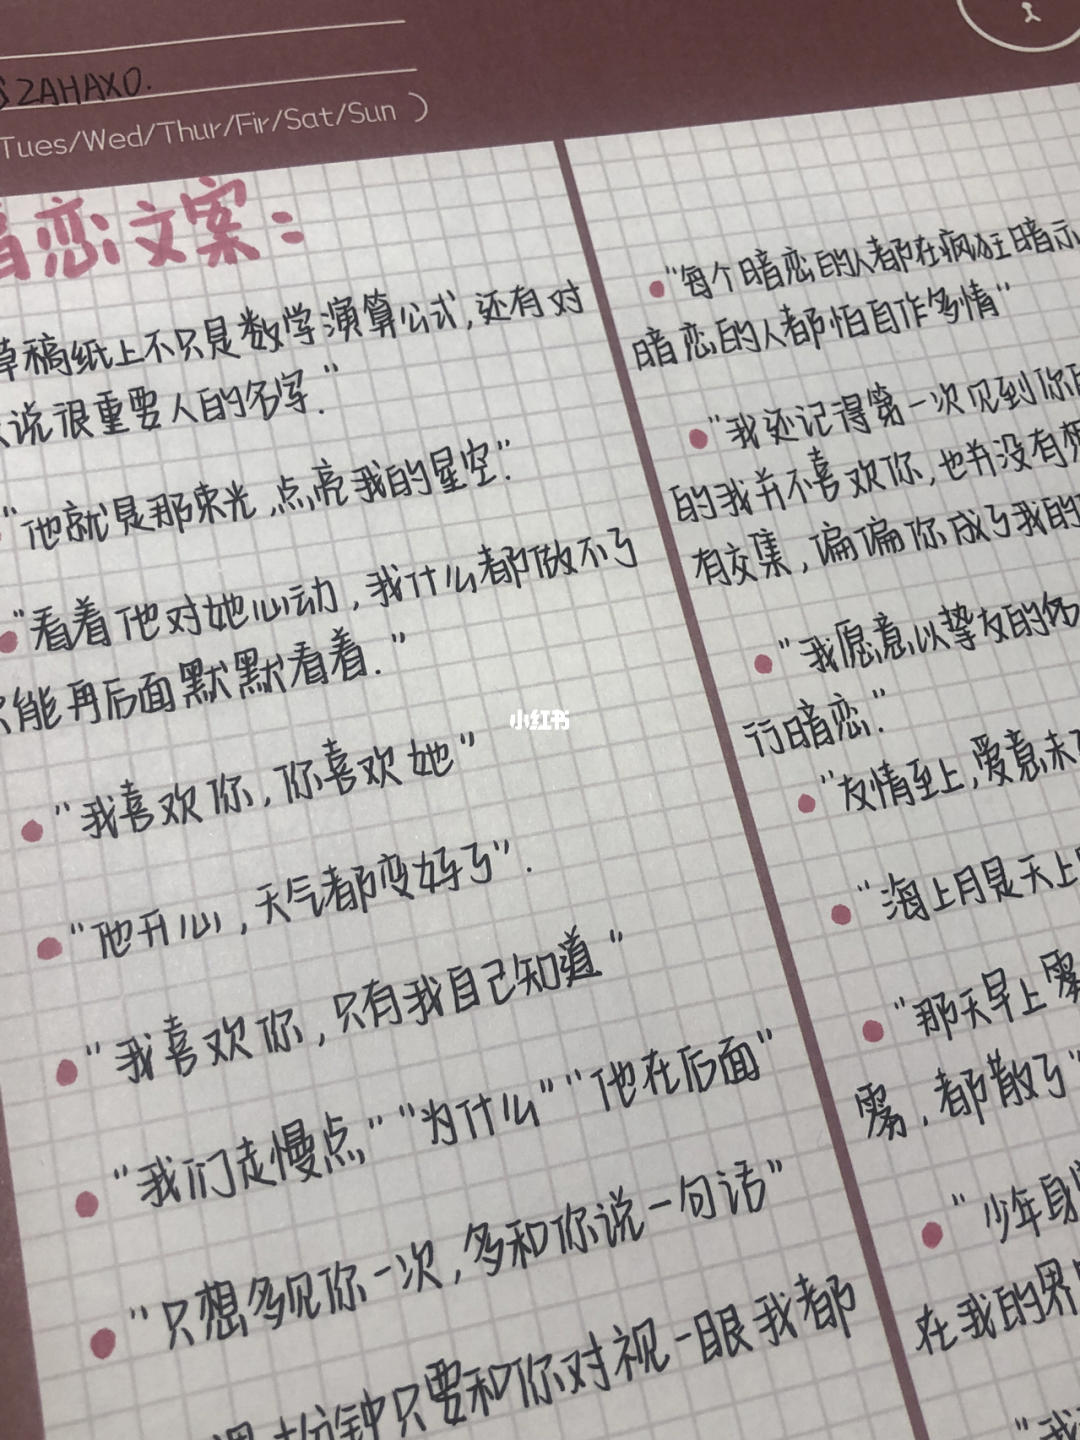 SZAHAXO.
Tues/Wed/Thur/Fir/Sat/Sun )
暗恋文案:
草稿纸上不只是数学演算公式,还有对
说很重要人的名字."
"他就是那束光,点亮我的星空".
"看着他对她心动,我什么都做不了
只能再后面默默看着."
"我喜欢你,你喜欢她"
"他开心,天气都变好了".
"我喜欢你,只有我自己知道"
"我们走慢点""为什么""他在后面"
"只想多见你一次,多和你说一句话"
分钟只要和你对视一眼我都
"每个暗恋的人都在疯狂暗示
暗恋的人都怕自作多情"
"我还记得第一次见到你
的我并不喜欢你,也并没有想
有交集,偏偏你成了我的
"我愿意以挚友的
行暗恋."
"友情至上,爱意未
"海上月是天上
"那天早上雾
雾,都散了"
"少年身
在我的界
"我
小红书